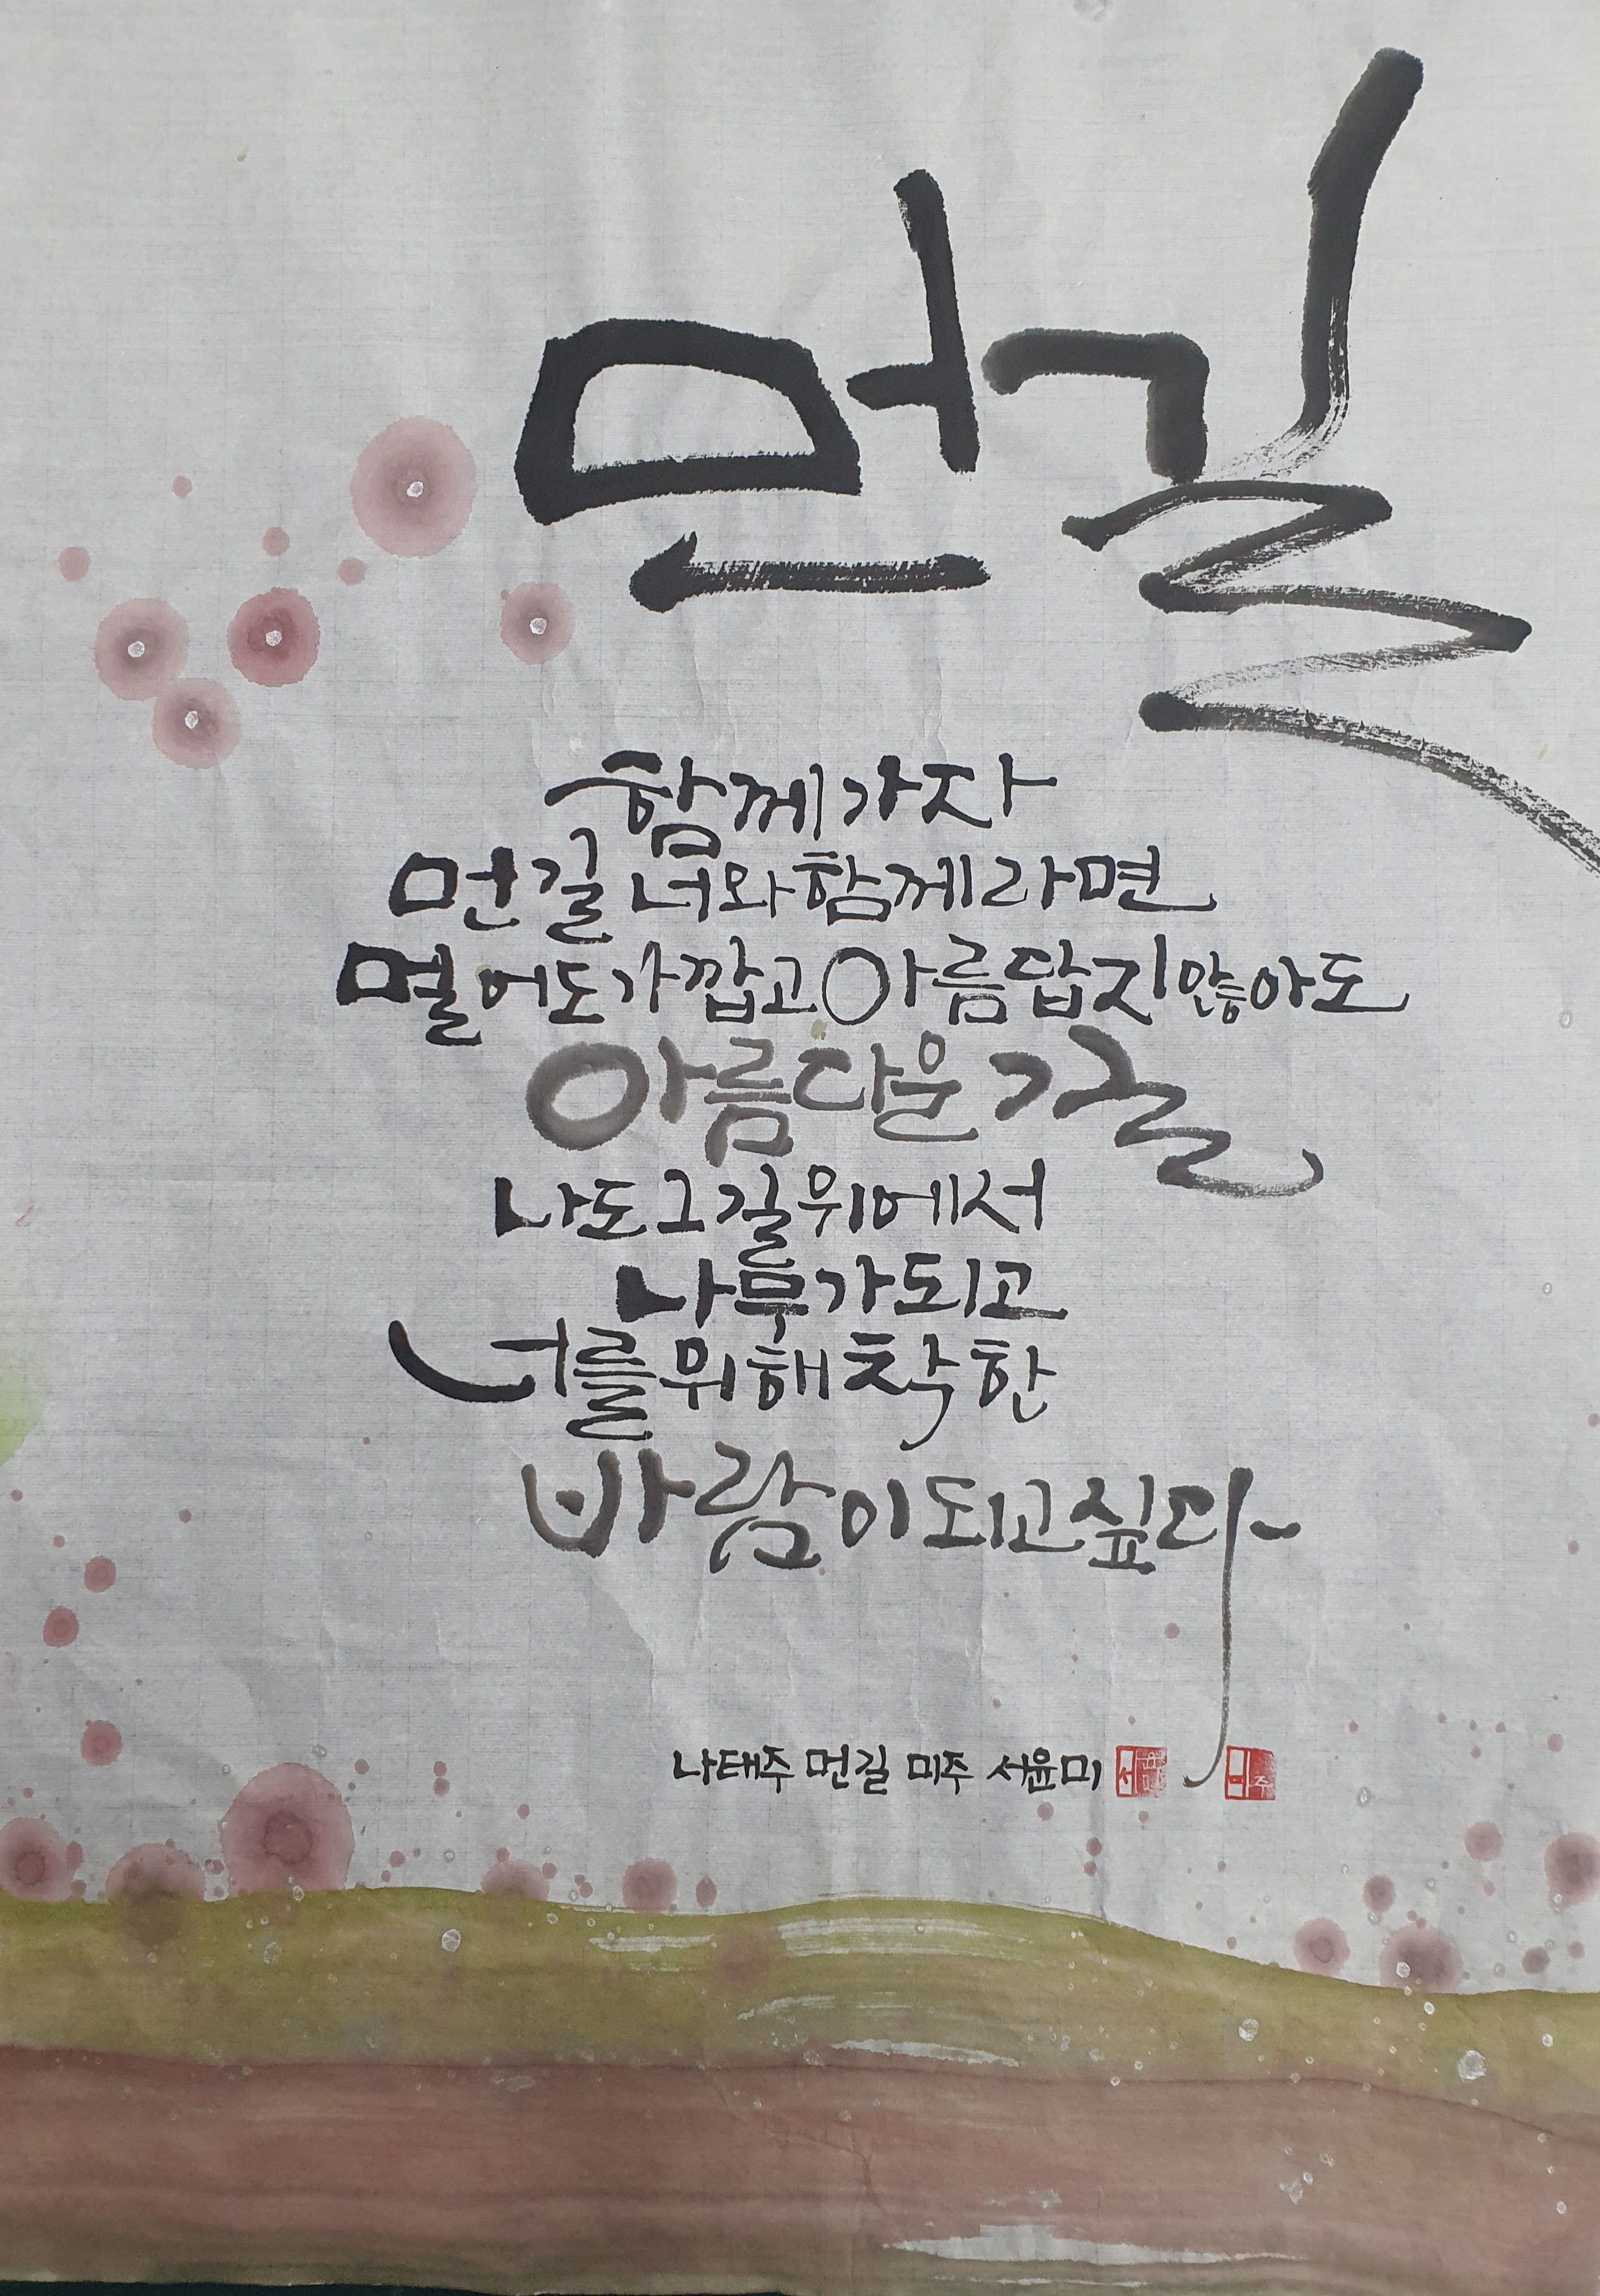 먼길
함께 가자
먼길 너와 함께라면
멀어도 가깝고 아름답지 않아도
아름다운 길
나도 그 길 위에서
나무가 되고
너를 위해 착한
바람이 되고 싶다~
나태주 먼길 미주 서윤미 서윤미 미주